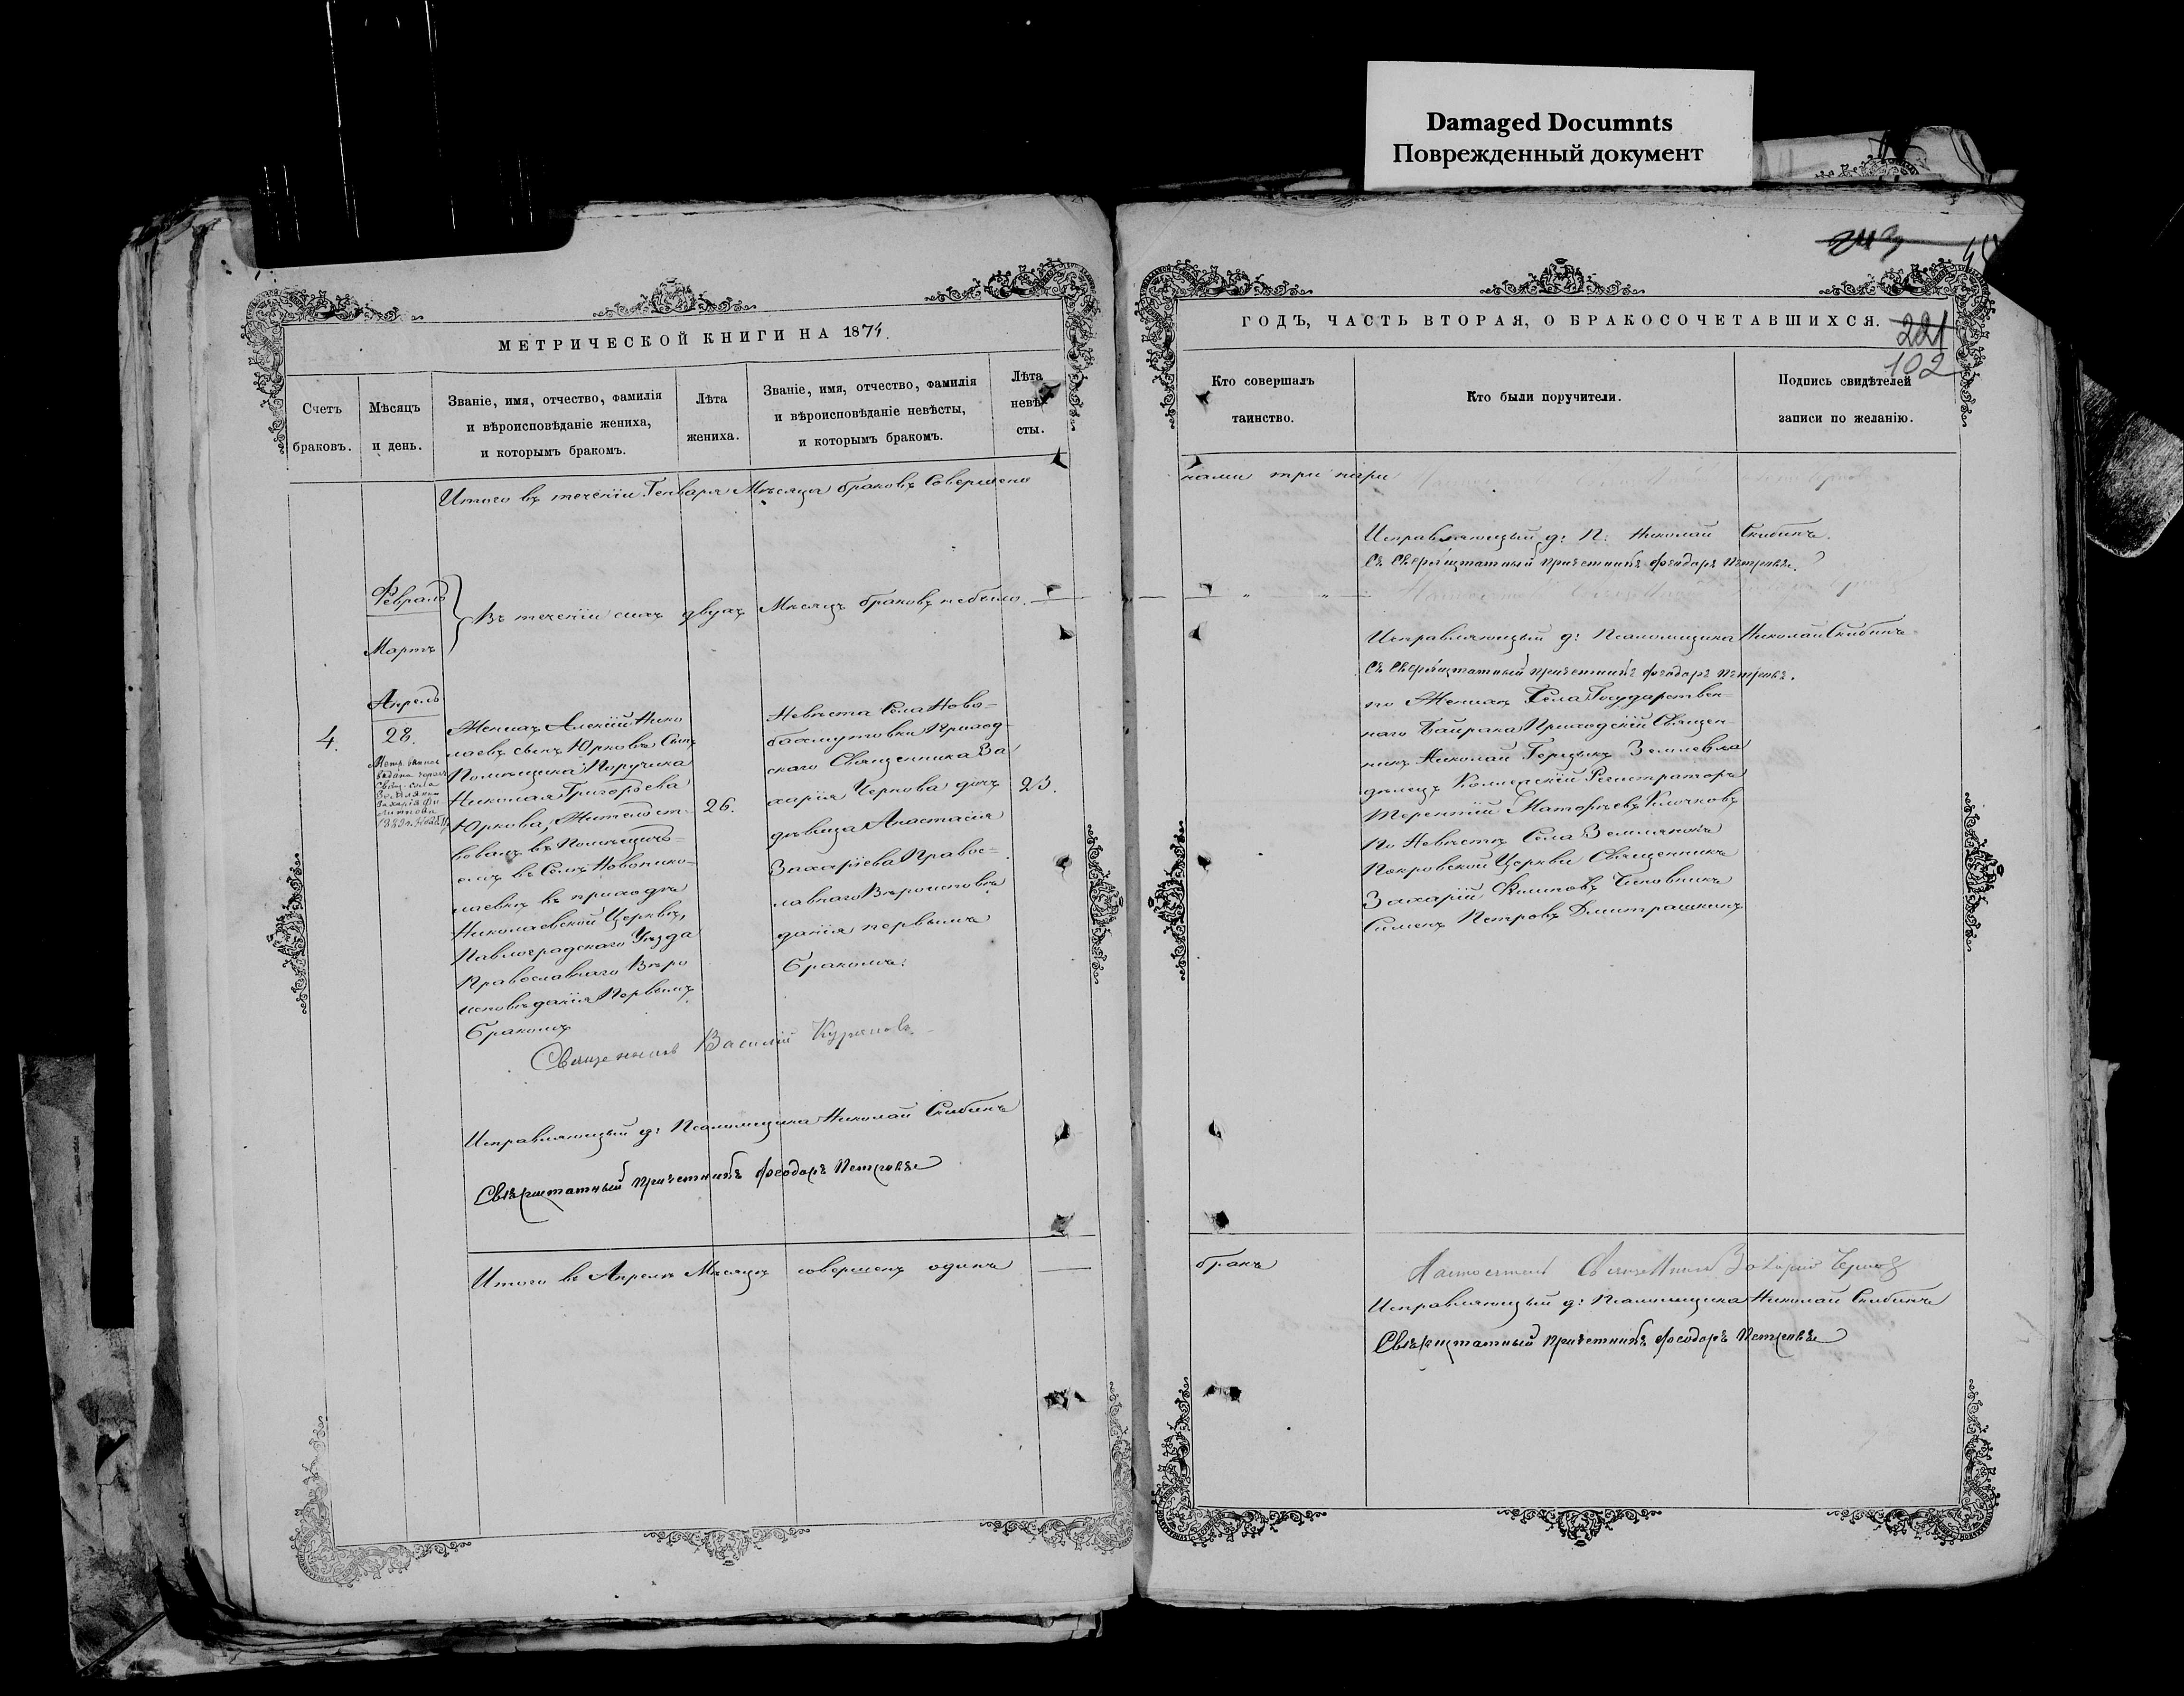 Damaged Documnts
Поврежденный документ
МЕТРИЧЕСКОЙ КНИГИ НА 1874.
Счетъ браковъ.
Мѣсяцъ и день.
Званіе, имя, отчество, фамилія
и вѣроисповѣданіе жениха,
и которымъ бракомъ.
Лѣта жениха.
Званіе, имя, отчество, фамилія
и вѣроисповѣданіе невѣсты,
и которымъ бракомъ.
Лѣта
невѣ-
сты.
Итого въ теченіи Генваря Мѣсяца браковъ Совершено
Февраль
Мартъ
Въ теченіи сихъ двухъ Мѣсяцъ браковъ небыло.
Апрѣль
4.
28.
Женихъ Алексій Нико
лаевъ сынъ Юрковъ Сынъ
Помѣщика Поручика
Николая Григорьева
Юркова, Жительст-
вовалъ въ Помѣщичь-
емъ въ Селѣ Новонико-
лаевкѣ въ приходѣ
Николаевской Церкви,
Павлоградскаго Уѣзда
Православнаго Вѣро
исповѣданія Первымъ
бракомъ
26.
Невѣста Села Ново-
бахмутовки Приход-
скаго Священника За
харія Чернова дочь
дѣвица Анастасія
Захаріева Правос-
лавнаго Вѣроисповѣ
данія первымъ
бракомъ.
23.
Священникъ Василій
Исправляющій д: Псаломщика Николай Скибинъ
Свѣрхштатный причетникъ Феодоръ Петровъ
Итого въ Апрелѣ Мѣсяцѣ совершенъ одинъ
ГОДЪ, ЧАСТЬ ВТОРАЯ, О БРАКОСОЧЕТАВШИХСЯ.
221
102
Кто совершалъ
таинство.
Кто были поручители.
Подпись свидѣтелей
записи по желанію.
нами три пары
Исправляющій д: П. Николай Скибинъ.
Свѣрхштатный причетникъ Феодоръ Петровъ.
Исправляющій д: Псаломщика Николай Скибинъ
Свѣрхштатный причетникъ Феодоръ Петровъ.
по Женихѣ Села Государствен-
наго Байрака Приходскій Священ-
никъ Николай Землевла
дѣлецъ Колежскій Регистраторъ
Терентій Матфѣевъ Клочковъ
По Невѣстѣ Села Землянокъ
Покровской Церкви Священникъ
Захарій Филиповъ Чиновникъ
Симеонъ Петровъ Дмитрашкинъ
бракъ
Священникъ Захарій Черновъ
Исправляющій д: Псаломщика Николай Скибинъ
Свѣрхштатный причетникъ Феодоръ Петровъ